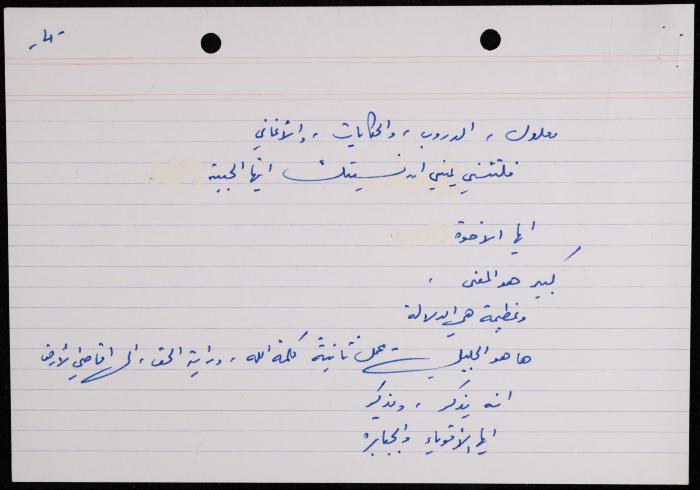 -٤-
معلول ، الدروب ، والحكايات ، والأغاني
فلتنسني يميني ان نسيتك ايتها الحبيبة
ايها الاخوة
كبير هو المغنى .
وعظيمة هي الدلالة
ها هو الجليل يحمل ثانية كلمة الله ، وراية الحق ، الى اقاصي الأرض
انه يذكر ، ويذكر
ايها الأقوياء والجبابرة